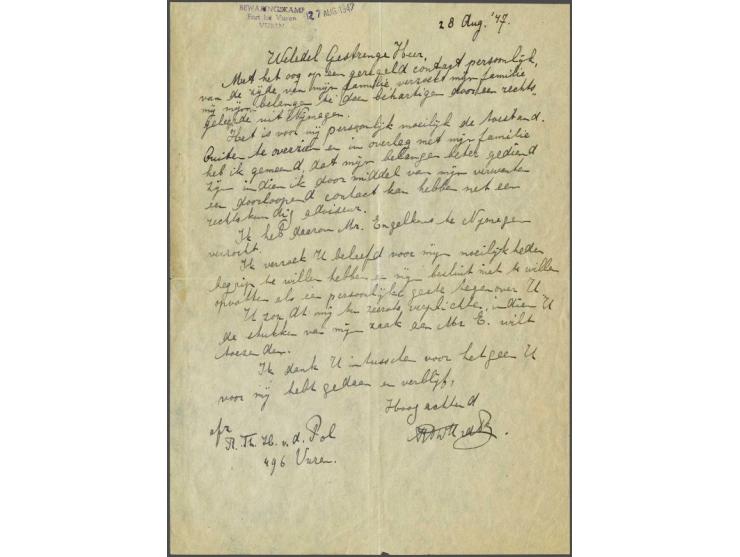 BEWARINGSKAMP
Fort te Vuren
VUREN
27 AUG. 1947
28 Aug. '47.
Weledel Gestrenge Heer,
Met het oog op een geregeld contact persoonlijk,
van de zijde van mijn familie, verzoekt mijn familie
mij mijn belangen te doen behartigen door een rechts-
geleerde uit Nijmegen.
Het is voor mij persoonlijk moeilijk de toestand
buiten te overzien en in overleg met mijn familie
heb ik gemeend, dat mijn belangen beter gediend
zijn indien ik door middel van mijn verwanten
een doorloopend contact kan hebben met een
rechtskundig adviseur.
Ik heb daarom Mr. Engelkens te Nijmegen
verzocht.
Ik verzoek U beleefd voor mijn moeilijkheden
begrip te willen hebben en mijn besluit niet te willen
opvatten als een persoonlijke geste tegenover U
U zou dit mij ten zeerste verplichten, indien U
de stukken van mijn zaak aan Mr. E. wilt
toezenden.
Ik dank U intusschen voor hetgeen U
voor mij hebt gedaan en verblijf,
Hoogachtend
afz
R. Th. H. v. d. Pol
496 Vuren.